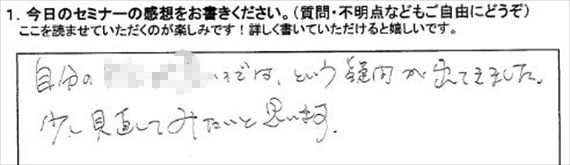 1. 今日のセミナーの感想をお書きください。（質問・不明点などもご自由にどうぞ）
ここを読ませていただくのが楽しみです！詳しく書いていただけると嬉しいです。
自分の では、という疑問が出てきました。
少し見直してみたいと思います。